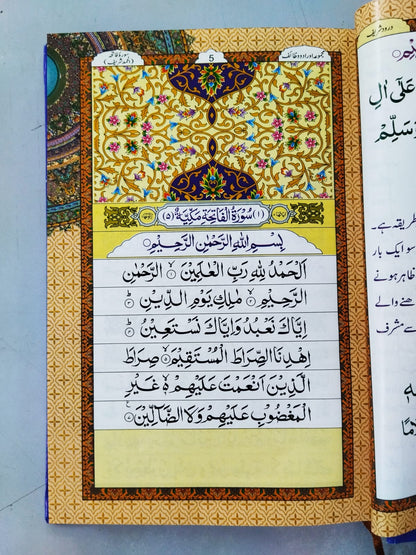 مجموعہ اوراد و وظائف
5
سورۃ فاتحہ
(الحمد شریف)
(۱) سُوْرَةُ الْفَاتِحَةِ مَكِّيَّةٌ (۵)
بِسْمِ اللهِ الرَّحْمٰنِ الرَّحِيْمِ
اَلْحَمْدُ لِلّٰهِ رَبِّ الْعٰلَمِيْنَ ۙ الرَّحْمٰنِ
الرَّحِيْمِ ۙ مٰلِكِ يَوْمِ الدِّيْنِ ؕ
اِيَّاكَ نَعْبُدُ وَاِيَّاكَ نَسْتَعِيْنُ ؕ
اِهْدِنَا الصِّرَاطَ الْمُسْتَقِيْمَ ۙ صِرَاطَ
الَّذِيْنَ اَنْعَمْتَ عَلَيْهِمْ ۙ غَيْرِ
الْمَغْضُوْبِ عَلَيْهِمْ وَلَا الضَّآلِّيْنَ
درود شریف
عَلٰى اٰلِ
وَسَلِّمْ
طریقہ ہے۔
سو ایک بار
ظاہر ہونے
والے
سے مشرف